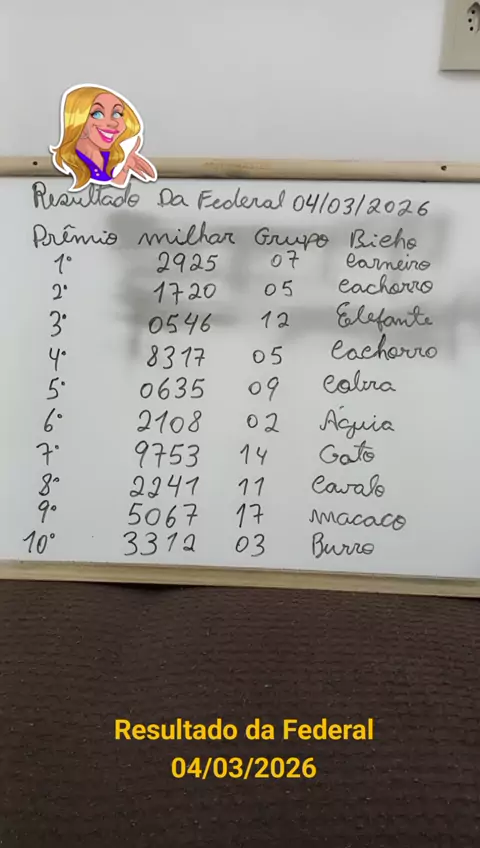 Resultado Da Federal 04/03/2026
Prêmio milhar Grupo Bicho
1º 2925 07 Carneiro
2º 1720 05 Cachorro
3º 0546 12 Elefante
4º 8317 05 Cachorro
5º 0635 09 Cobra
6º 2108 02 Águia
7º 9753 14 Gato
8º 2241 11 Cavalo
9º 5067 17 macaco
10º 3312 03 Burro
Resultado da Federal
04/03/2026